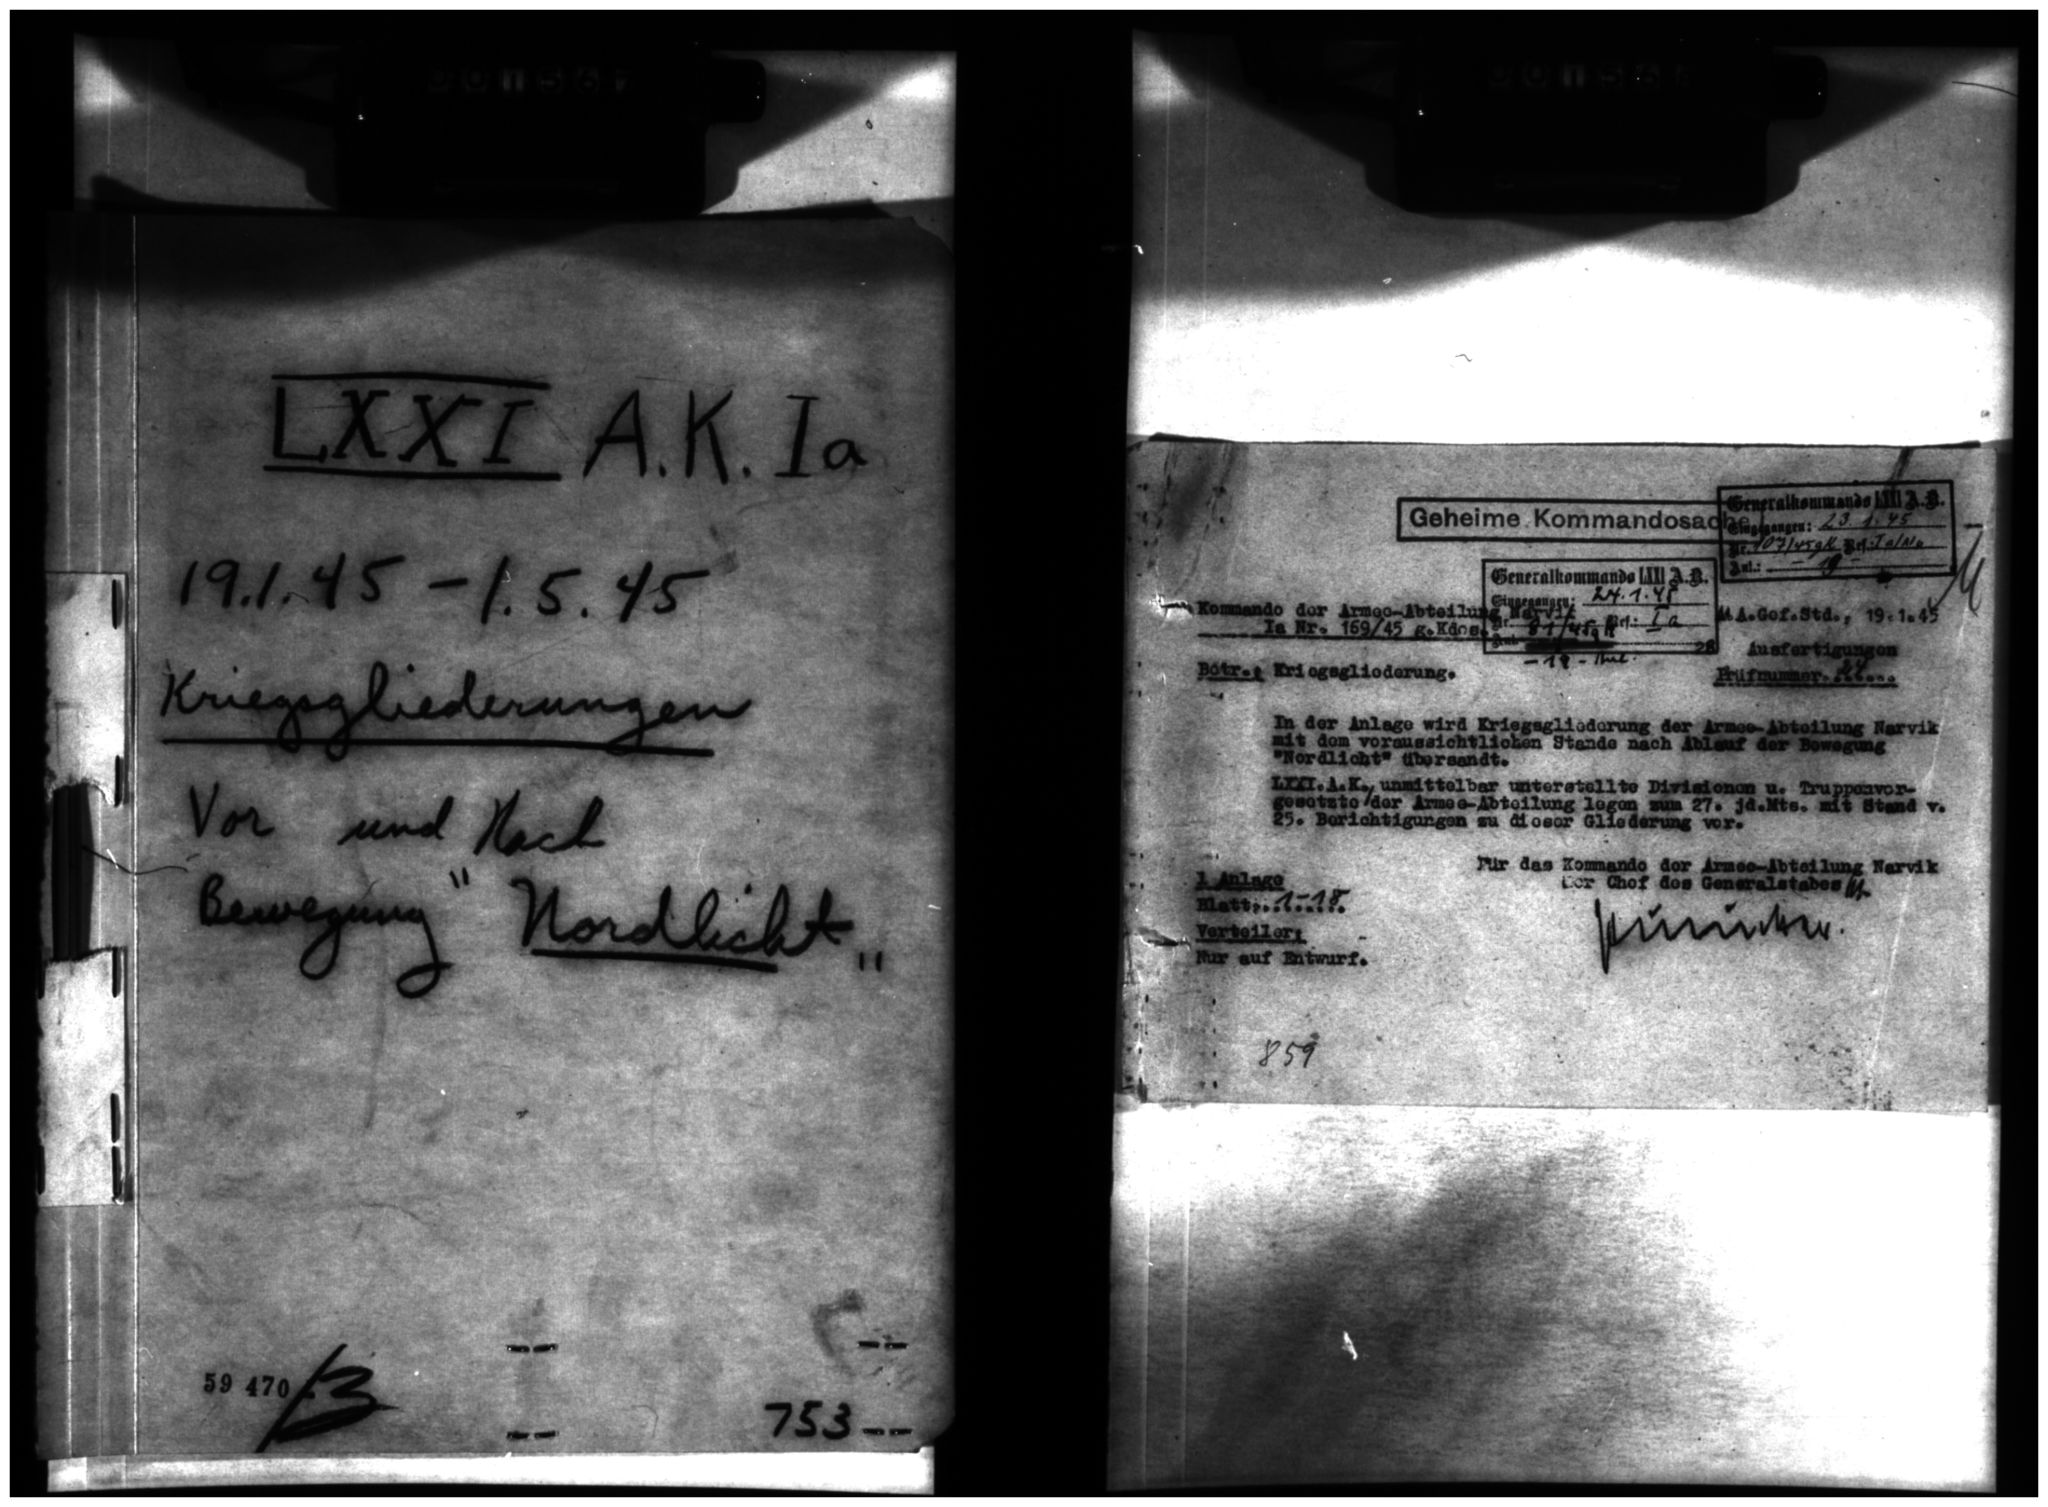 LXXI A.K. Ia
19.1.45 – 1.5.45
Kriegsgliederungen
Vor und Nach
Bewegung " Nordlicht "
59 470
753
Geheime Kommandosache
Generalkommando LXXI A.K.
Eingegangen: 23.1.45
Nr. 107/45gK Ref. Ia/No
Anl.: - 19 -
Generalkommando LXXI A.K.
Eingegangen: 24.1.45
Nr. 81/45gK Ref.: Ia
Anl.
- 19 - Anl.
Kommando der Armee-Abteilung Narvik
Ia Nr. 169/45 g.Kdos.
A.Gef.Std., 19.1.45
28 Ausfertigungen
Prüfnummer
Betr.: Kriegsgliederung.
In der Anlage wird Kriegsgliederung der Armee-Abteilung Narvik
mit dem voraussichtlichen Stande nach Ablauf der Bewegung
"Nordlicht" übersandt.
LXXI.A.K., unmittelbar unterstellte Divisionen u. Truppenvor-
gesetzte der Armee-Abteilung legen zum 27. jd.Mts. mit Stand v.
25. Berichtigungen zu dieser Gliederung vor.
Für das Kommando der Armee-Abteilung Narvik
Der Chef des Generalstabes
1 Anlage
Blatt 1-18
Verteiler:
Nur auf Entwurf.
859